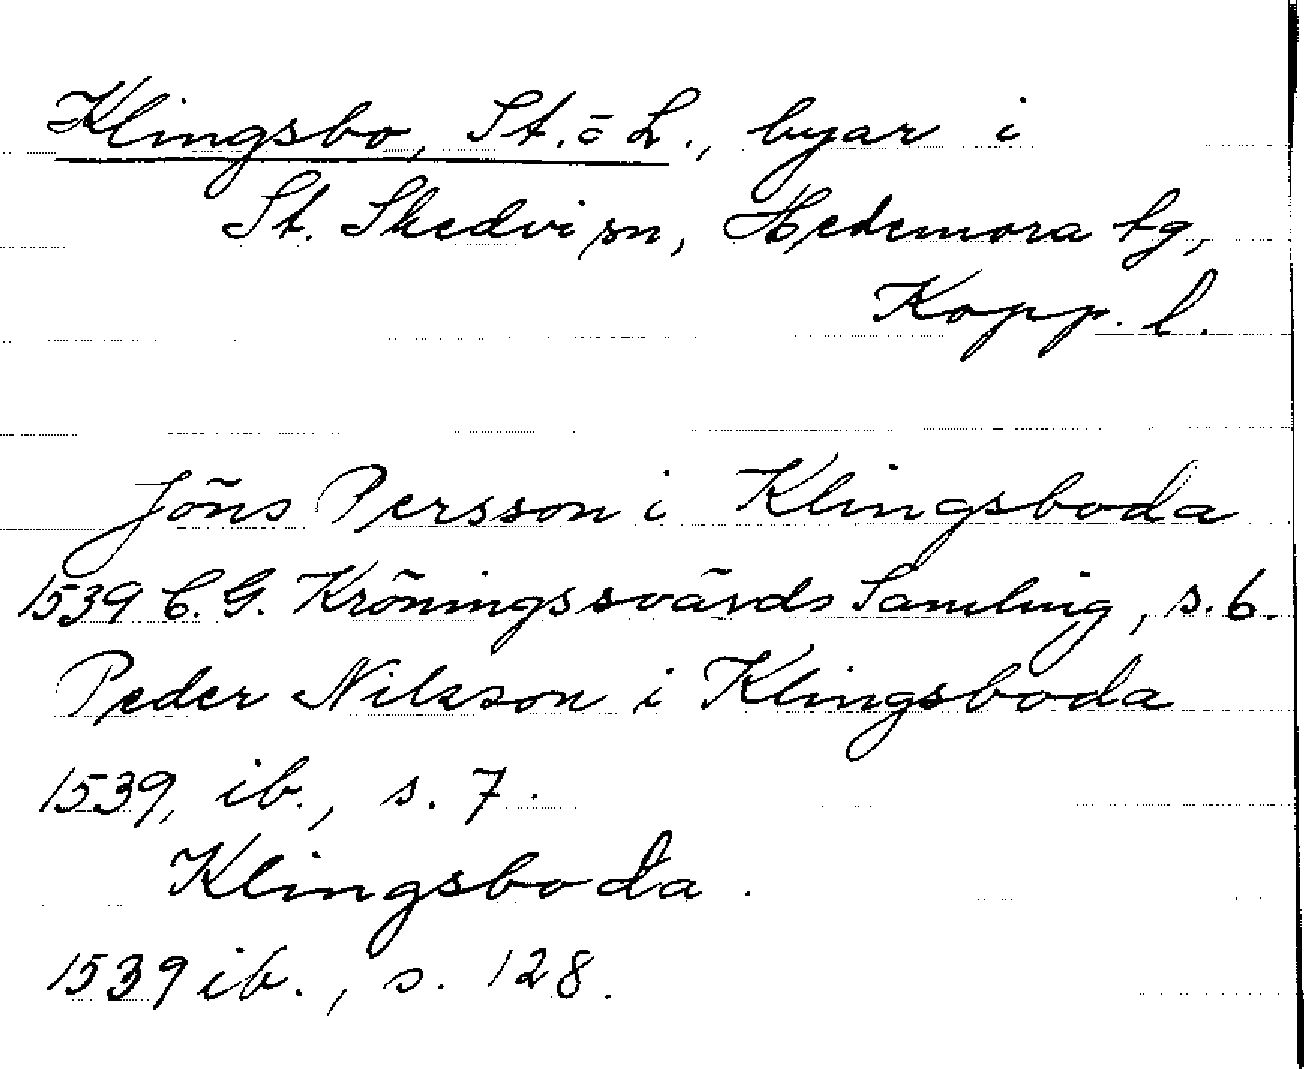 Klingsbo, St. o L., byar i
St. Skedvi sn, Hedemora tg,
Kopp. l.
Jöns Persson i Klingsboda
1539 C. G. Kröningssvärds Samling, s. 6.
Peder Nilsson i Klingsboda
1539, ib., s. 7.
Klingsboda.
1539 ib., s. 128.